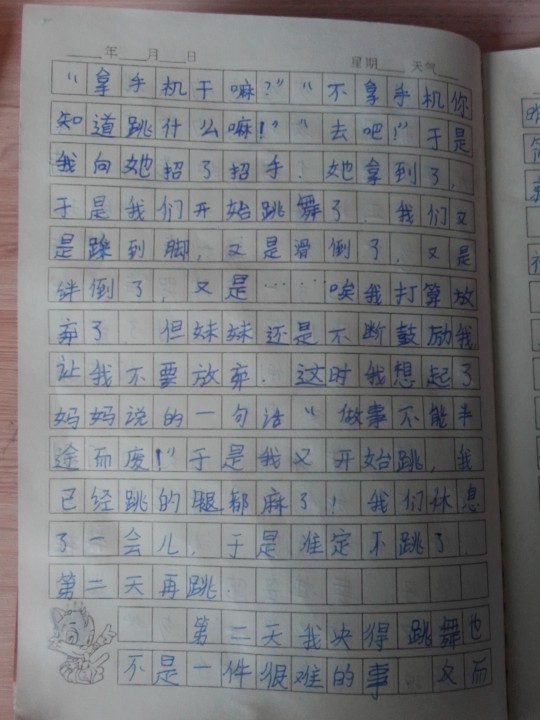 年 月 日 星期 天气
“拿手机干嘛?”“不拿手机你
知道跳什么嘛!”“去吧!”于是
我向她招了招手.她拿到了.
于是我们开始跳舞了.我们又
是跺到脚,又是滑倒了,又是
绊倒了,又是……唉我打算放
弃了 但妹妹还是不断鼓励我
让我不要放弃.这时我想起了
妈妈说的一句话“做事不能半
途而废!”于是我又开始跳,我
已经跳的腿都麻了!我们休息
了一会儿,于是准定不跳了.
第二天再跳.
第二天我决得跳舞也
不是一件很难的事 又而